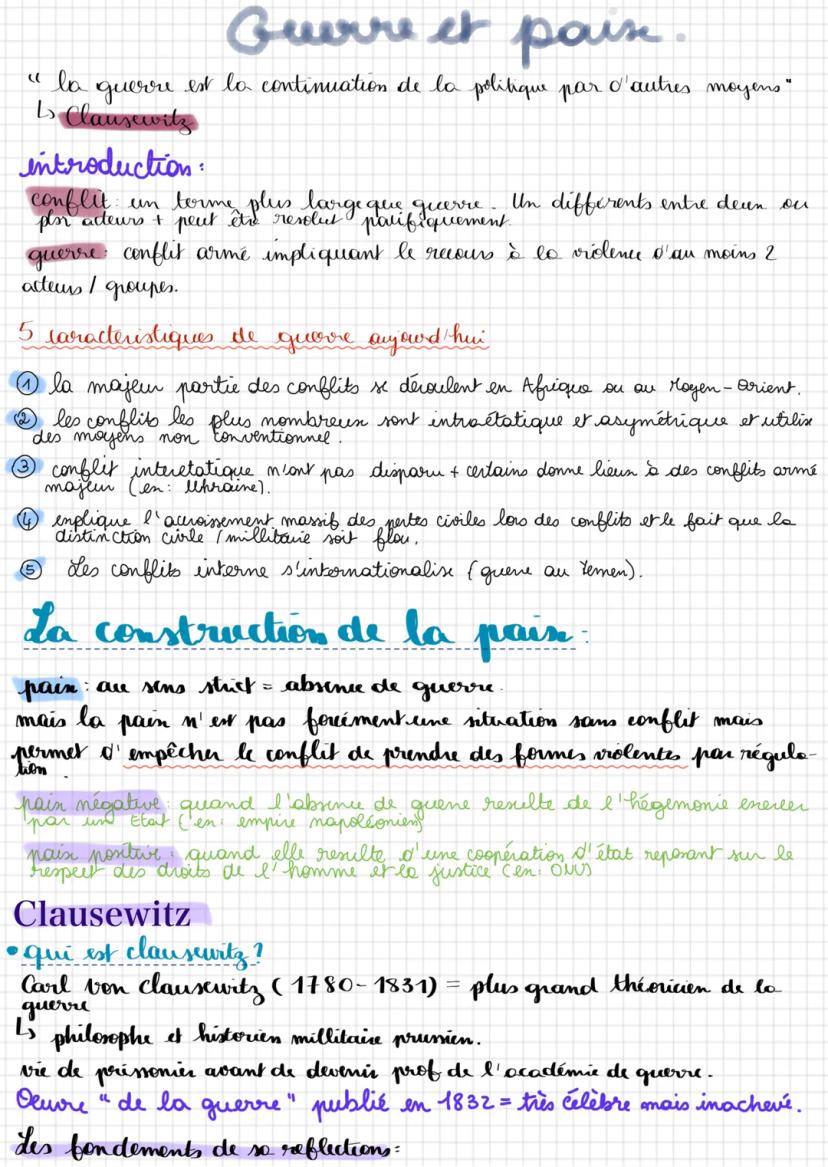 Guerre et paix.
" la guerre est la continuation de la politique par d'autres moyens"
↳ Clausewitz
introduction :
conflit : un terme plus large que guerre. Un différents entre deux ou
plsr acteurs + peut être resolut pacifiquement.
guerre : conflit armé impliquant le recours à la violence d'au moins 2
acteurs / groupes.
5 caractéristiques de guerre aujourd'hui
① la majeur partie des conflits se déroulent en Afrique ou au Moyen-Orient.
② les conflits les plus nombreux sont intraétatique et asymétrique et utilise
des moyens non conventionnel.
③ conflit interetatique n'ont pas disparu + certains donne lieux à des conflits armé
majeur (ex: Ukraine).
④ explique l'accroissement massif des pertes civiles lors des conflits et le fait que la
distinction civile / millitaire soit flou.
⑤ Les conflits interne s'internationalise (guerre au Yemen).
La construction de la paix :
paix : au sens strict = absence de guerre.
mais la paix n'est pas forcément une situation sans conflit mais
permet d'empêcher le conflit de prendre des formes violentes par régula-
tion.
paix négative : quand l'absence de guerre resulte de l'hégemonie exercer
par un Etat (ex: empire napoléonien)
paix positive : quand elle resulte d'une coopération d'état reposant sur le
respect des droits de l'homme et la justice (ex: ONU)
Clausewitz
• qui est clausewitz ?
Carl von clausewitz (1780-1831) = plus grand théoricien de la
guerre
↳ philosophe et historien millitaire prussien.
vie de prissonier avant de devenir prof de l'académie de guerre.
Oeuvre "de la guerre" publié en 1832 = très célèbre mais inachevé.
Les fondements de sa reflections :